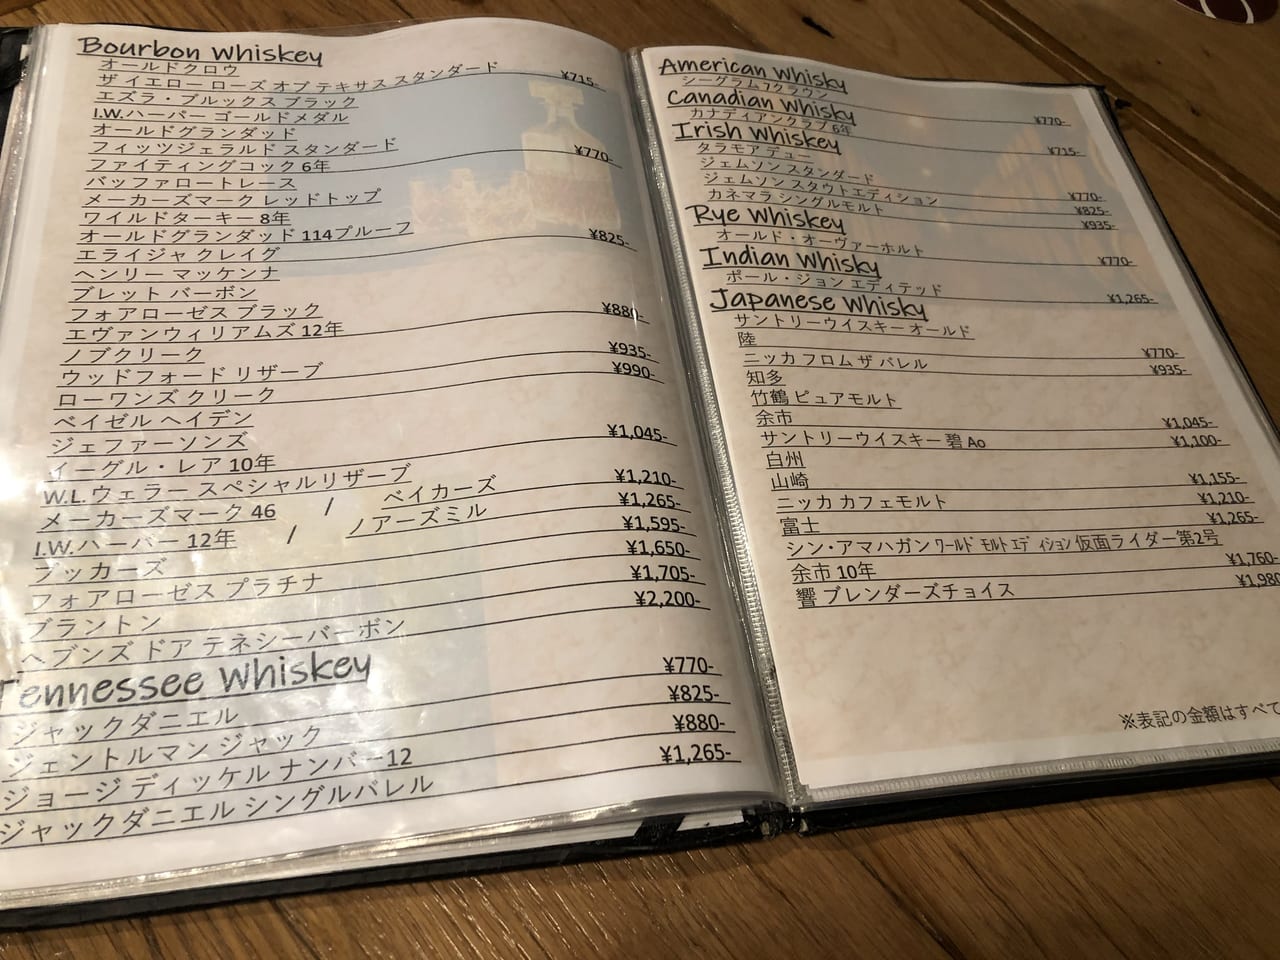 Bourbon Whiskey
オールドクロウ
ザ イエロー ローズ オブ テキサス スタンダード ¥715-
エズラ・ブルックス ブラック
I.W.ハーパー ゴールドメダル
オールドグランダッド
フィッツジェラルド スタンダード ¥770-
ファイティングコック 6年
バッファロートレース
メーカーズマーク レッドトップ
ワイルドターキー 8年
オールドグランダッド 114プルーフ ¥825-
エライジャ クレイグ
ヘンリー マッケンナ
ブレット バーボン
フォアローゼズ ブラック ¥880-
エヴァンウィリアムズ 12年
ノブクリーク ¥935-
ウッドフォード リザーブ ¥990-
ローワンズ クリーク
ベイゼル ヘイデン
ジェファーソンズ ¥1,045-
イーグル・レア 10年
W.L.ウェラー スペシャルリザーブ ¥1,210-
メーカーズマーク 46 / ベイカーズ ¥1,265-
I.W.ハーパー 12年 / ノアーズミル ¥1,595-
ブッカーズ ¥1,650-
フォアローゼス プラチナ ¥1,705-
ブラントン ¥2,200-
ヘブンズ ドア テネシーバーボン
Tennessee Whiskey
ジャックダニエル ¥770-
ジェントルマン ジャック ¥825-
ジョージ ディッケル ナンバー12 ¥880-
ジャックダニエル シングルバレル ¥1,265-
American Whisky
シーグラム7クラウン ¥770-
Canadian Whisky
カナディアンクラブ 6年 ¥715-
Irish Whiskey
タラモア デュー
ジェムソン スタンダード ¥770-
ジェムソン スタウトエディション ¥825-
カネマラ シングルモルト ¥935-
Rye Whiskey
オールド・オーヴァーホルト ¥770-
Indian Whisky
ポール・ジョン エディテッド ¥1,265-
Japanese Whisky
サントリーウイスキー オールド
陸 ¥770-
ニッカ フロム ザ バレル ¥935-
知多
竹鶴 ピュアモルト
余市 ¥1,045-
サントリーウイスキー 碧 Ao ¥1,100-
白州
山崎 ¥1,155-
ニッカ カフェモルト ¥1,210-
富士 ¥1,265-
シン・アマハガン ワールド モルト エディション 仮面ライダー第2号
余市 10年 ¥1,760-
響 ブレンダーズチョイス ¥1,980
※表記の金額はすべて